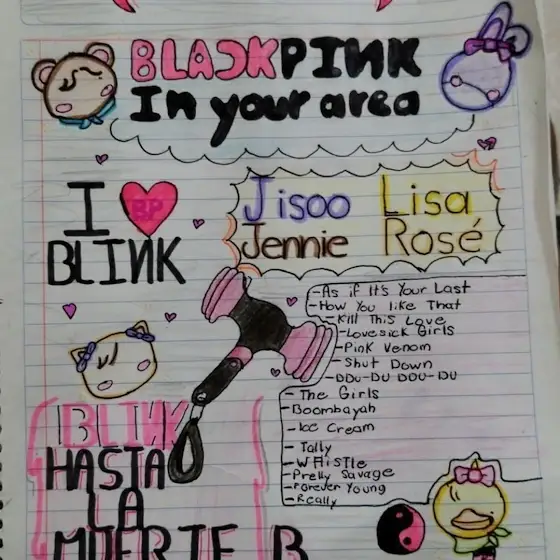 BLACKPINK
In your area
I BP
BLINK
Jisoo Lisa
Jennie Rosé
-As if It's Your Last
-How You like That
-Kill This Love
-Lovesick Girls
-Pink Venom
-Shut Down
-DDU-DU DDU-DU
-The Girls
-Boombayah
-Ice Cream
-Tally
-WHistle
-Pretty Savage
-Forever Young
-Really
BLINK
HASTA
LA
MUERTE B